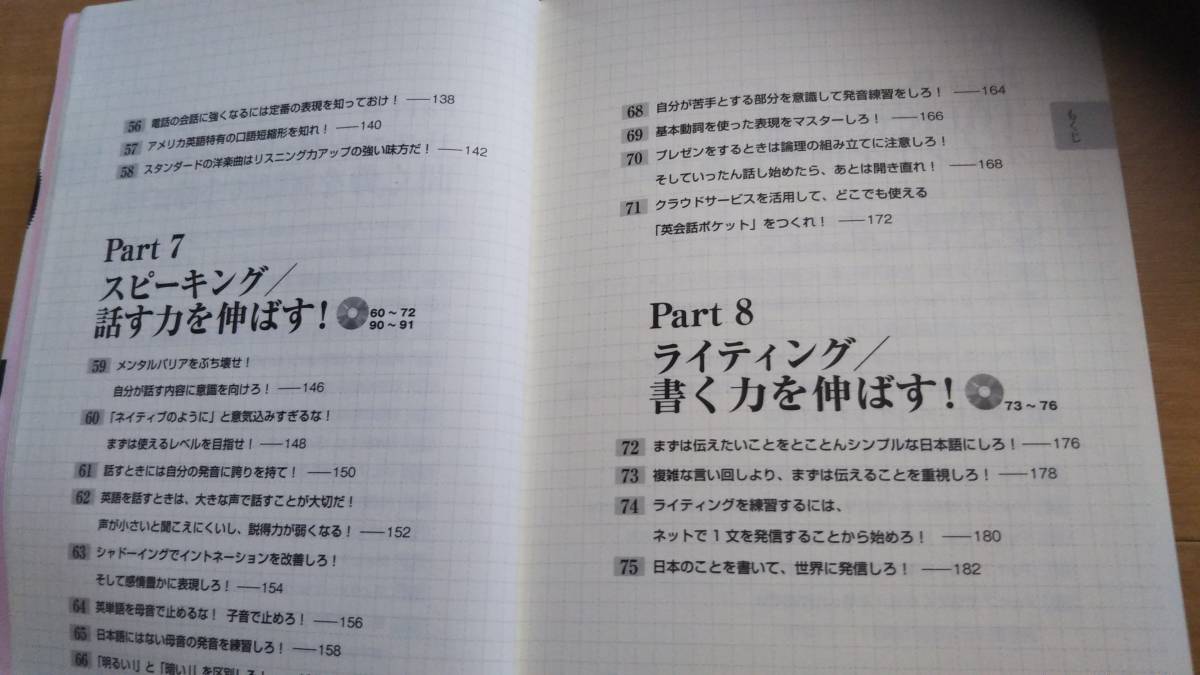 56 電話の会話に強くなるには定番の表現を知っておけ！ ——138
57 アメリカ英語特有の口語短縮形を知れ！ ——140
58 スタンダードの洋楽曲はリスニング力アップの強い味方だ！ ——142
Part 7
スピーキング／
話す力を伸ばす！ 60～72
90～91
59 メンタルバリアをぶち壊せ！
自分が話す内容に意識を向けろ！ ——146
60 「ネイティブのように」と意気込みすぎるな！
まずは使えるレベルを目指せ！ ——148
61 話すときには自分の発音に誇りを持て！ ——150
62 英語を話すときは、大きな声で話すことが大切だ！
声が小さいと聞こえにくいし、説得力が弱くなる！ ——152
63 シャドーイングでイントネーションを改善しろ！
そして感情豊かに表現しろ！ ——154
64 英単語を母音で止めるな！ 子音で止めろ！ ——156
65 日本語にはない母音の発音を練習しろ！ ——158
66 「明るいl」と「暗いl」を区別しろ！
もくじ
68 自分が苦手とする部分を意識して発音練習をしろ！ ——164
69 基本動詞を使った表現をマスターしろ！ ——166
70 プレゼンをするときは論理の組み立てに注意しろ！
そしていったん話し始めたら、あとは開き直れ！ ——168
71 クラウドサービスを活用して、どこでも使える
「英会話ポケット」をつくれ！ ——172
Part 8
ライティング／
書く力を伸ばす！ 73～76
72 まずは伝えたいことをとことんシンプルな日本語にしろ！ ——176
73 複雑な言い回しより、まずは伝えることを重視しろ！ ——178
74 ライティングを練習するには、
ネットで1文を発信することから始めろ！ ——180
75 日本のことを書いて、世界に発信しろ！ ——182